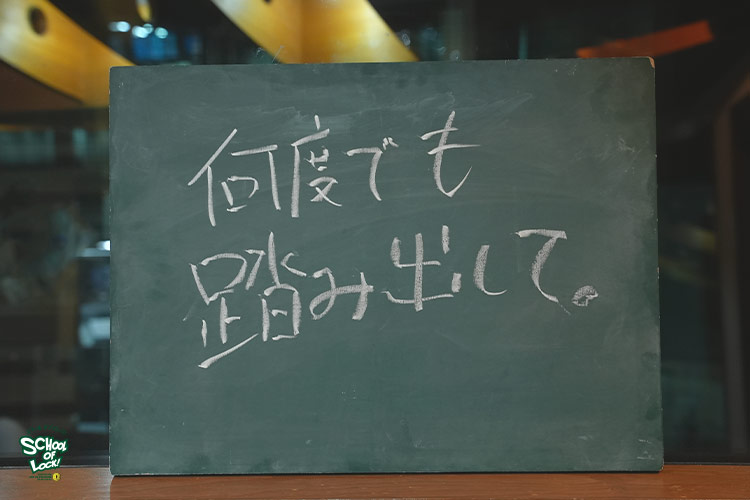 何度でも
踏み出して。
SCHOOL
OF
LOCK!